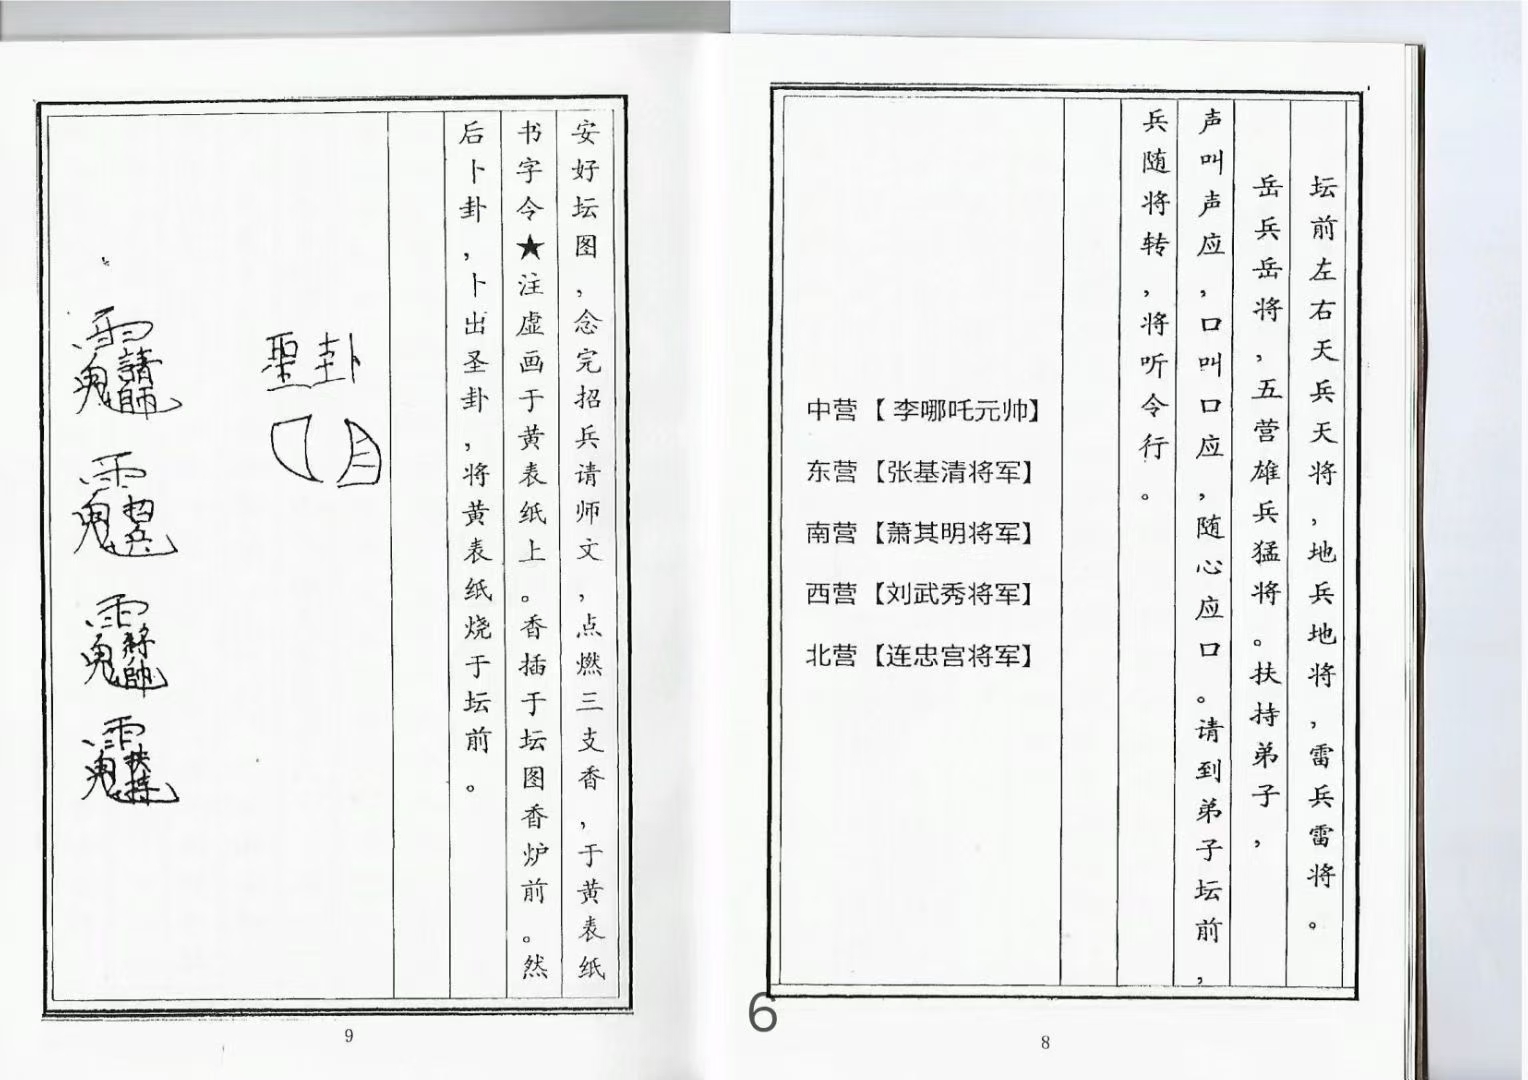 坛前左右天兵天将，地兵地将，雷兵雷将。
岳兵岳将，五营雄兵猛将。扶持弟子，
声叫声应，口叫口应，随心应口。请到弟子坛前，
兵随将转，将听令行。
中营【 李哪吒元帅】
东营【张基清将军】
南营【萧其明将军】
西营【刘武秀将军】
北营【连忠宫将军】
6
8
安好坛图，念完招兵请师文，点燃三支香，于黄表纸
书字令★注虚画于黄表纸上。香插于坛图香炉前。然
后卜卦，卜出圣卦，将黄表纸烧于坛前。
聖卦
雨鬼請師
雨鬼招兵
雨鬼
雨鬼扶持
9